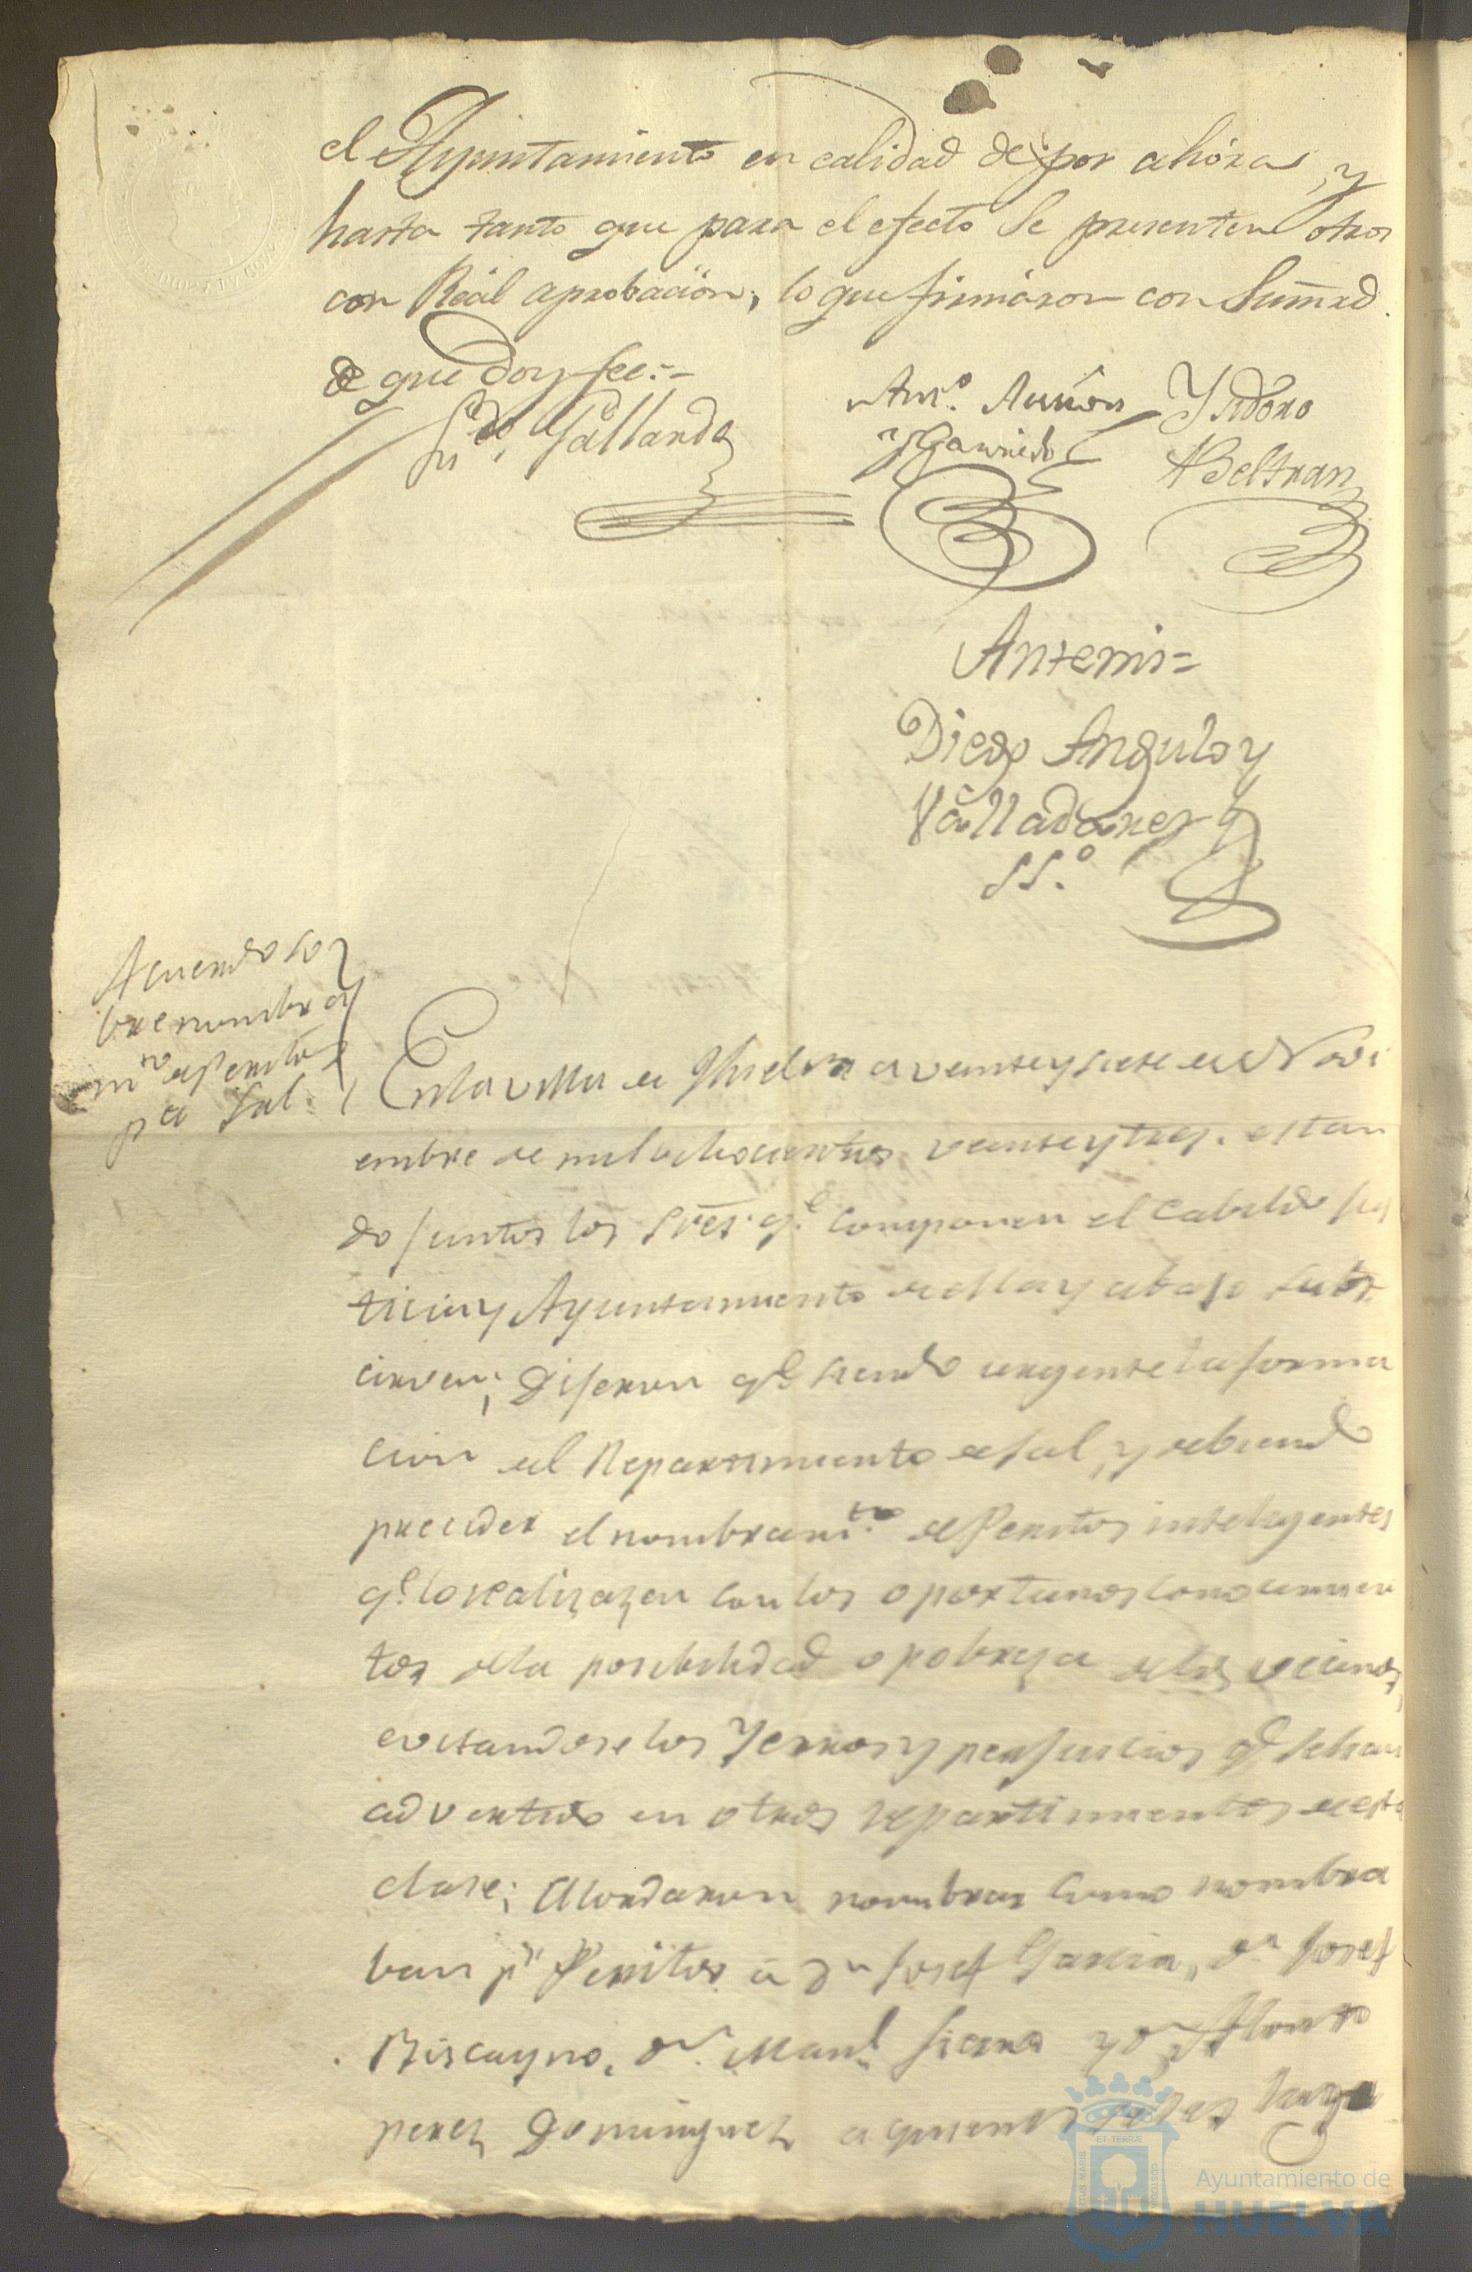 el Ayuntamiento en calidad de por ahora, y
hasta tanto que para el efecto se presenten otros
con Reál aprobación, lo que firmáron con Sumrd.
de que doy fee:-
Gallardo
Antº. Aunión
y Garrido
Ysidoro
Beltran
Antemi=
Diego Angulo y
Valladares
SSº.
Acuerdo so
bre nombra
mto de Peritos
pa Sal.
En la villa de Huelva a veinte y siete de Novi
embre de mil ochocientos veinte y tres. estan
do juntos los Sres. qe. componen el Cabildo Jus
ticia y Ayuntamiento de ella y abajo subs
criven; Dijeron qe siendo urgente la forma
cion del Repartimiento de sal, y debiendo
preceder el nombramto. de Peritos inteligentes
qe lo realizazen con los oportunos conocimien
tos de la posibilidad o pobreza de los vecinos,
evitandose los Yerros y perjuicios qe se han
advertido en otros repartimientos de esta
clase; Acordaron nombrar como nombra
ban pr Peritos a Dn Josef Garcia, Dn Josef
Biscayno, Dn. Manl. Sierra y Dn Alonso
perez Dominguez a quienes se les haga
ET TERRÆ
Ayuntamiento de
HUELVA